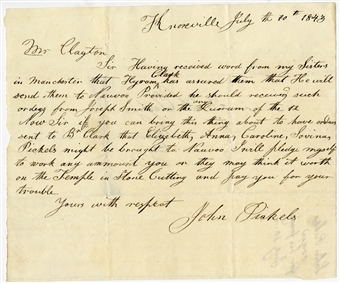 Knoxville July the 10th 1843
Mr Clayton
Sir Having received word from my Sisters
in Manchester that Hyram Clark has assured them that He will
send them to Nauvoo Provided he should receive such
orders from Joseph Smith or the Quoram of the 12
Now Sir if you can bring this thing about to have orders
sent to Br Clark that Elizabeth, Anna, Caroline, Lovina,
Pickels might be brought to Nauvoo I will pledge myself
to work any ammount you or they may think it worth
on the Temple in Stone Cutting and pay you for your
trouble
Yours with respect
John Pickels